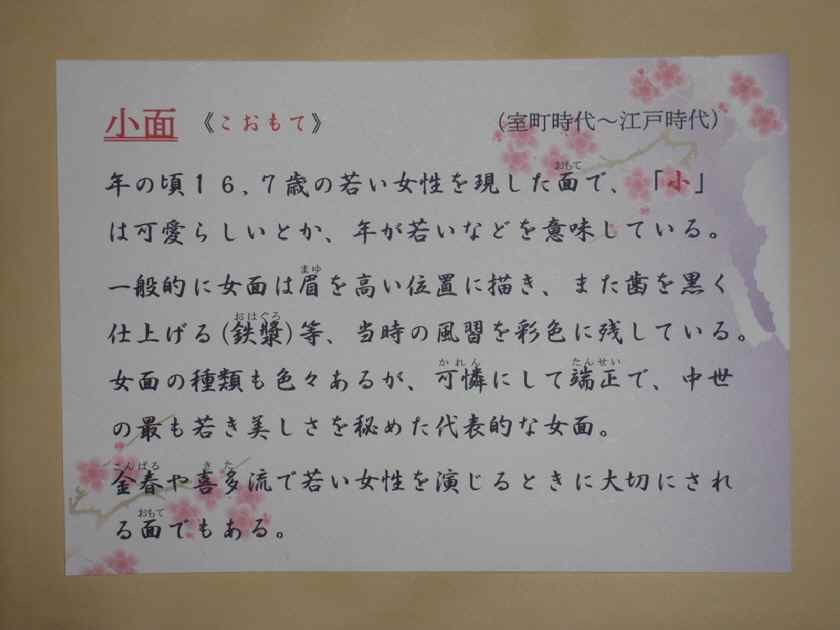 小面 《こおもて》 (室町時代～江戸時代)
年の頃１６,７歳の若い女性を現した面で、「小」
は可愛らしいとか、年が若いなどを意味している。
一般的に女面は眉を高い位置に描き、また歯を黒く
仕上げる(鉄漿)等、当時の風習を彩色に残している。
女面の種類も色々あるが、可憐にして端正で、中世
の最も若き美しさを秘めた代表的な女面。
金春や喜多流で若い女性を演じるときに大切にされ
る面でもある。